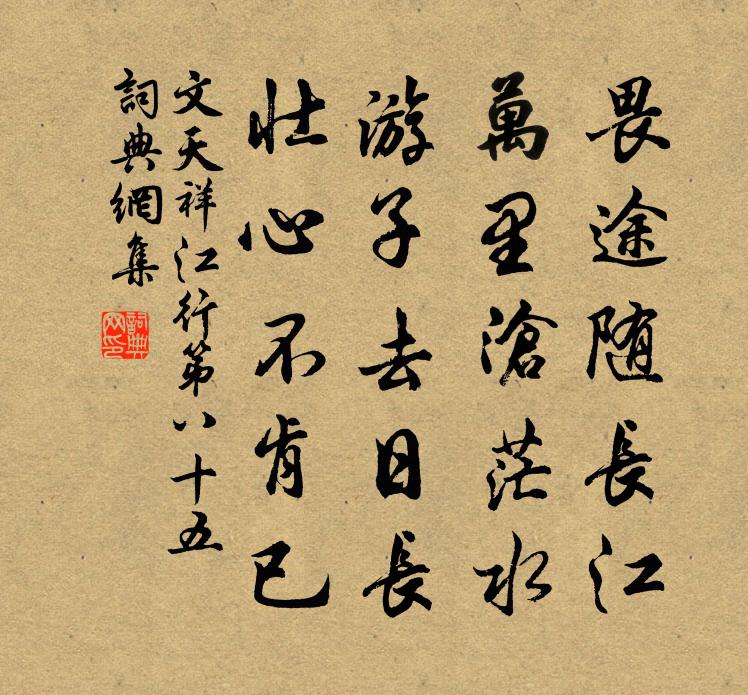 畏途随長江
萬里滄茫水
游子去日長
壯心不肯已
文天祥江行第八十五
詞典網集
詞典网印